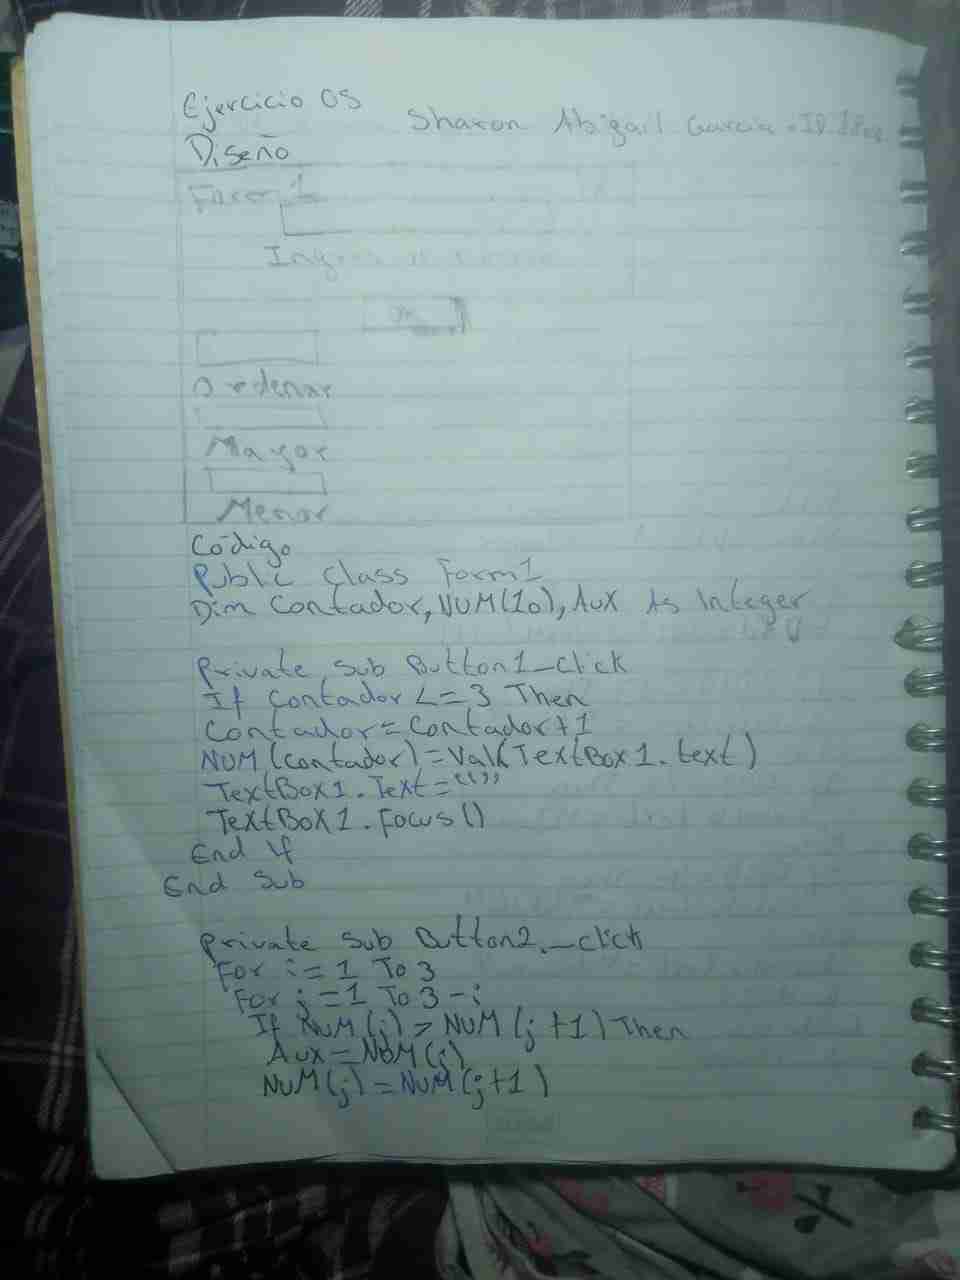 Ejercicio 05
Sharon Abigail Garcia
Diseño
Form 1
Ok
Ordenar
Mayor
Menor
Código
Public Class Form1
Dim Contador, NUM(10), Aux As Integer
Private Sub Button1_Click
If Contador <= 3 Then
Contador = Contador + 1
NUM (contador) = Val(TextBox1.text)
TextBox1.Text = “”
TextBox1.Focus()
End If
End Sub
Private Sub Button2_Click
For i = 1 To 3
For j = 1 To 3 - i
If NUM (j) > NUM (j + 1) Then
Aux = NUM (j)
NUM (j) = NUM (j + 1)